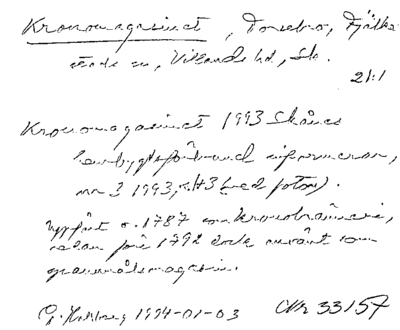 Kronomagasinet, Torsebro, Fjälke
stads sn, Villands hd, Sk.
21:1
Kronomagasinet 1993 Skånes
hembygdsförbund informerar,
nr 3 1993, s.
Uppfört o. 1787 som kronobränneri,
sedan från 1792 dock använt som
spannmålsmagasin.
1994-01-03 33157